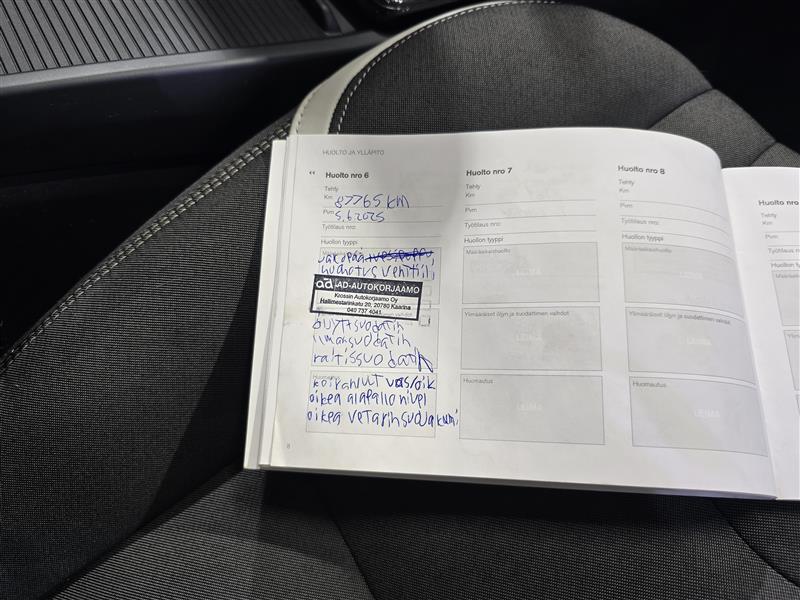 HUOLTO JA YLLÄPITO
Huolto nro 6
Tehty
Km 87765 KM
Pvm 5.6.2025
Työtilaus nro:
Huollon tyyppi
jakopää
huohotus venttiili
ad AD-AUTOKORJAAMO
Krossin Autokorjaamo Oy
Hallimestarinkatu 20, 20780 Kaarina
040 737 4041
öljytsuodatin
ilmansuodatin
raitissuodatin
Huomautus
koiranluut vas/oik
oikea alapallo nivel
oikea vetarinsuojakumi
8
Huolto nro 7
Tehty
Km
Pvm
Työtilaus nro:
Huollon tyyppi
Määräaikaishuolto
LEIMA
Ylimääräiset öljyn ja suodattimen vaihdot
LEIMA
Huomautus
LEIMA
Huolto nro 8
Tehty
Km
Pvm
Työtilaus nro:
Huollon tyyppi
Määräaikaishuolto
LEIMA
Ylimääräiset öljyn ja suodattimen vaihdot
LEIMA
Huomautus
LEIMA
Huolto nro
Tehty
Km
Pvm
Työtilaus nro:
Huollon tyyppi